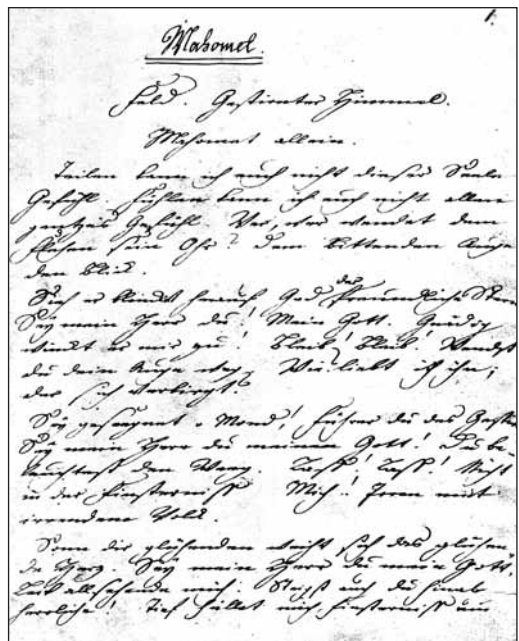 1.
Mahomet.
Feld. Gestirnter Himmel.
Mahomet allein.
Teilen kann ich euch nicht dieser Seele
Gefühl. Fühlen kann ich euch nicht allen
ganzes Gefühl. Wer, wer wendet dem
Flehen sein Ohr? Dem bittenden Auge
den Blick.
der
Sieh er blinket herauf Gad freundliche Stern
Sey mein Herr du! Mein Gott. Gnädig
winckt er mir zu! Bleib! Bleib! Wendst
du dein Auge weg. Wie liebt ich ihn;
der sich verbirgt?
Sey gesegnet o Mond! Führer du des Gestirns
Sey mein Herr du mein Gott! Du be-
leuchtest den Weeg. Lass! Lass! Nicht
in der Finsterniss Mich! Irren mit
irrendem Volk.
Sonn dir glühenden weiht sich das glühen-
de Herz. Sey mein Herr du mein Gott.
Leit allsehende mich. Steigst auch du hinab
herrliche! Tief hüllet mich Finsterniss ein